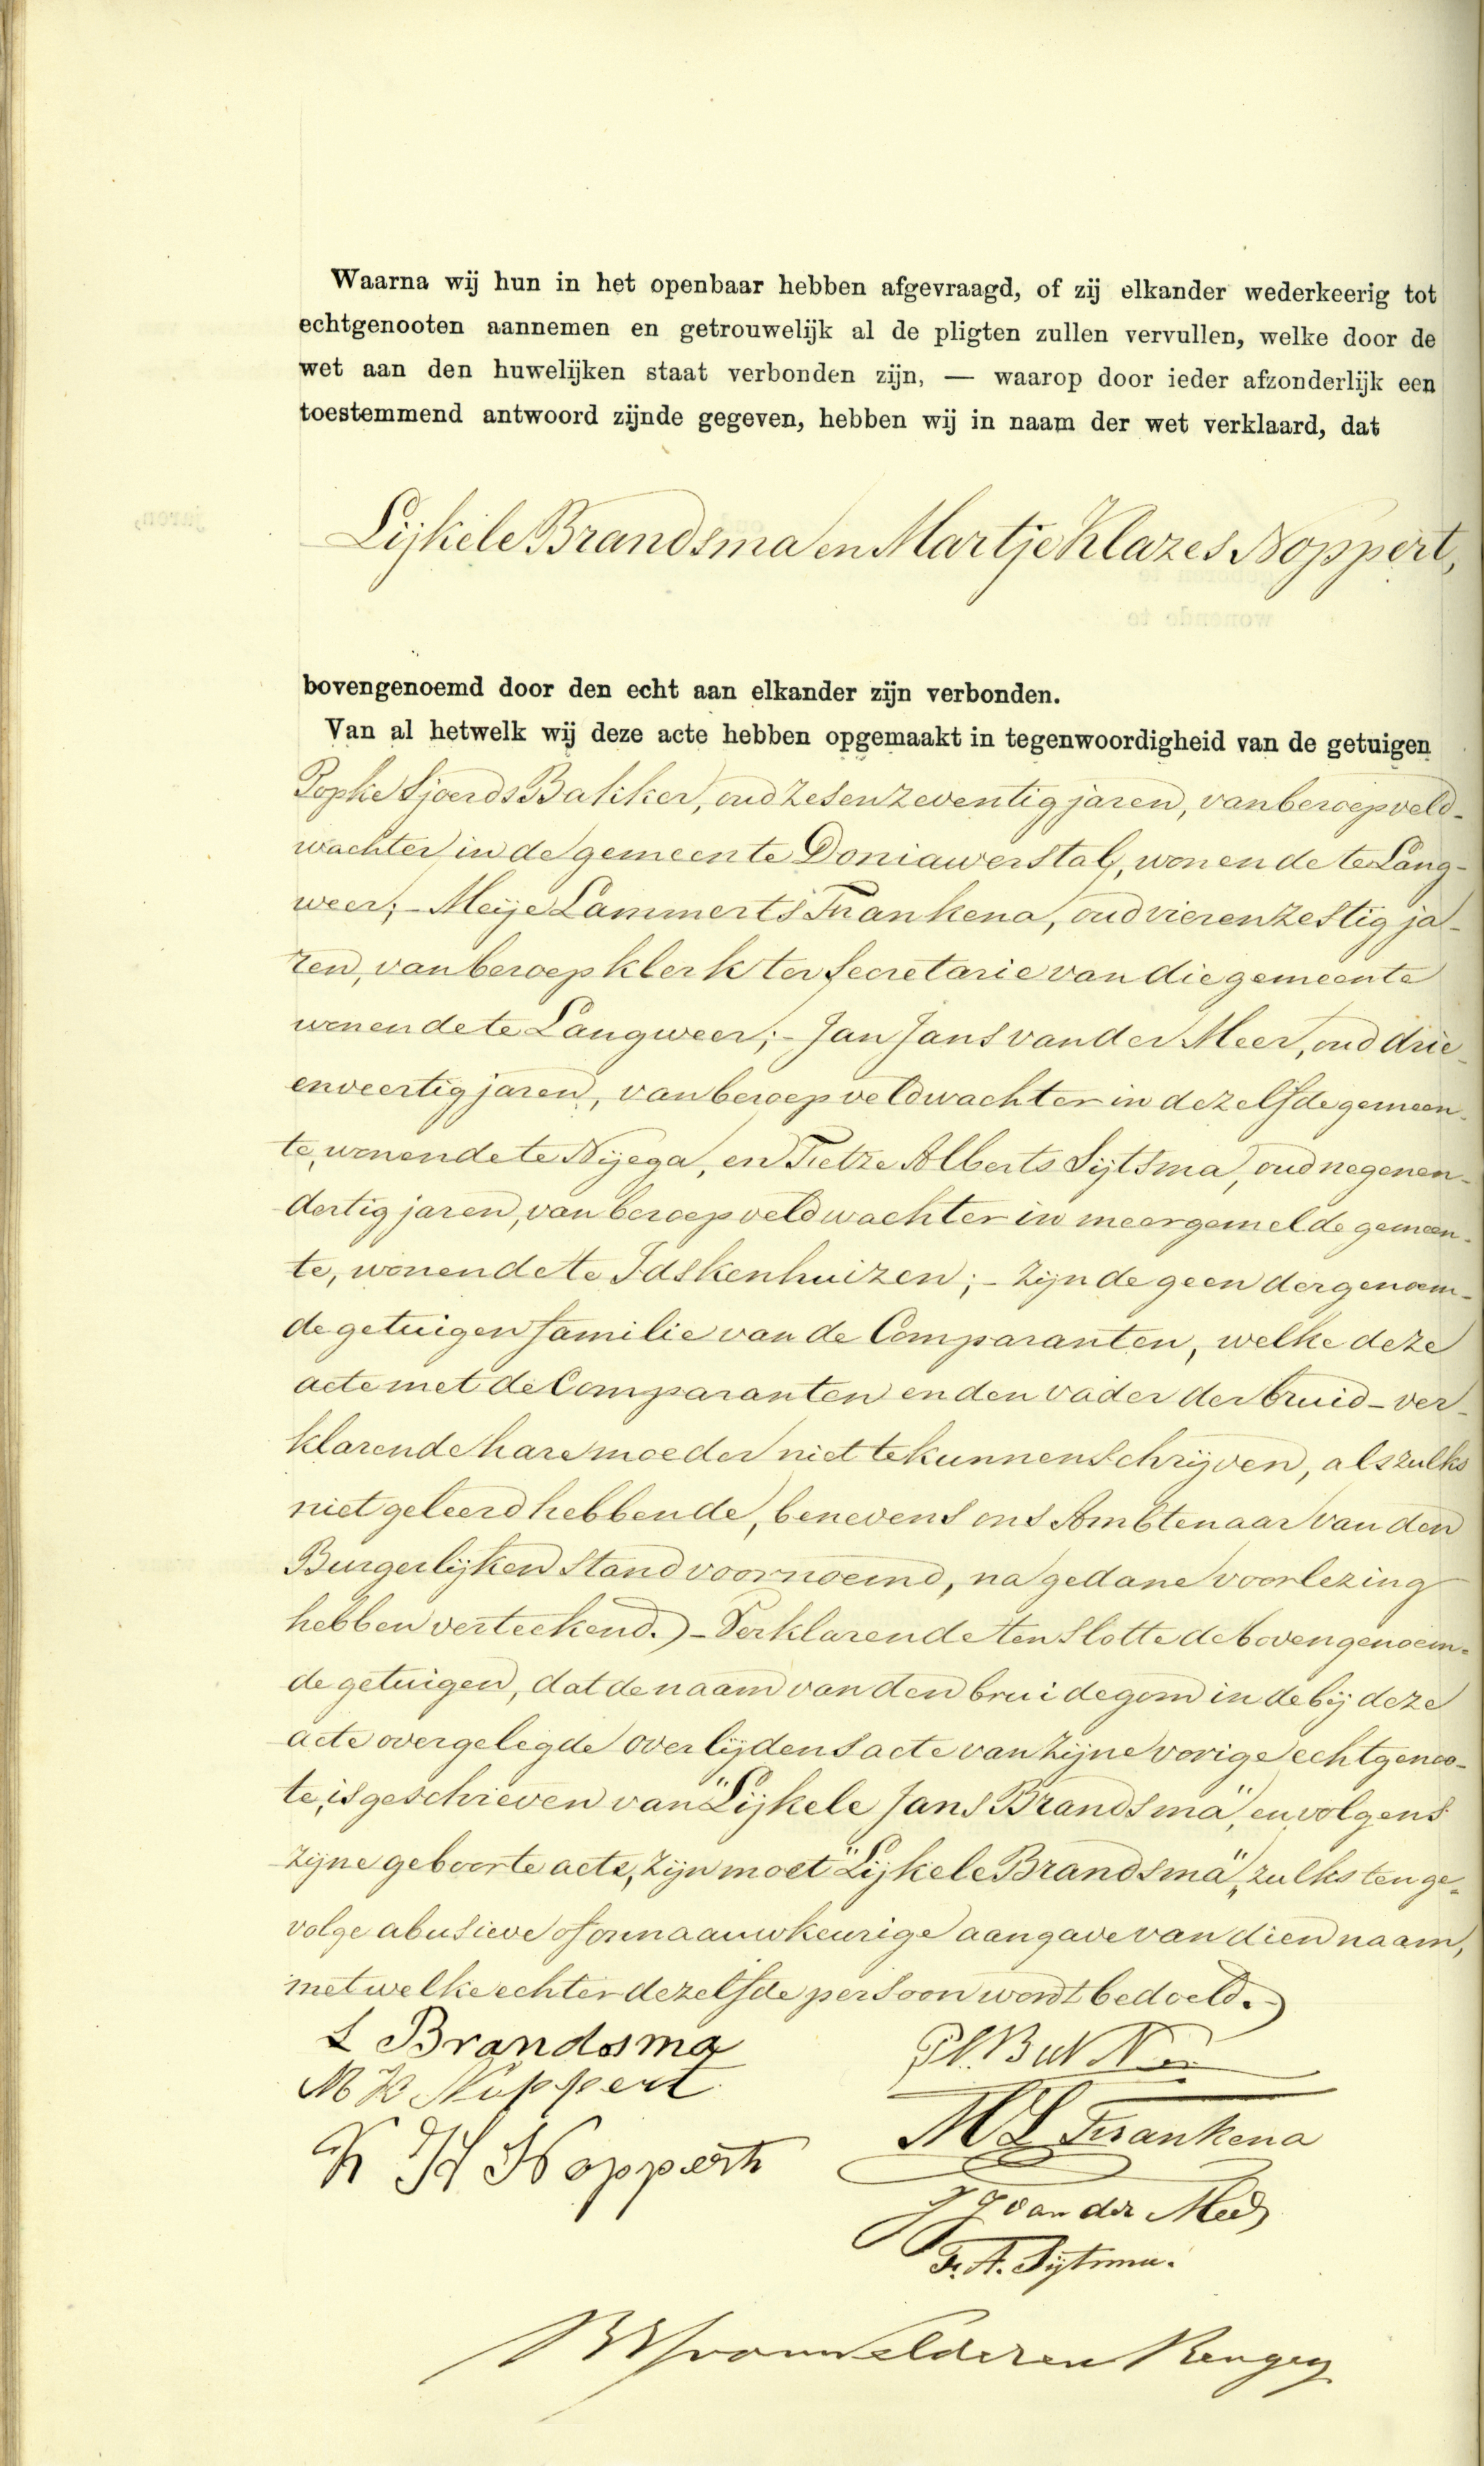 Waarna wij hun in het openbaar hebben afgevraagd, of zij elkander wederkeerig tot
echtgenooten aannemen en getrouwelijk al de pligten zullen vervullen, welke door de
wet aan den huwelijken staat verbonden zijn, — waarop door ieder afzonderlijk een
toestemmend antwoord zijnde gegeven, hebben wij in naam der wet verklaard, dat
Lijkele Brandsma en Martje Klazes Noppert,
bovengenoemd door den echt aan elkander zijn verbonden.
Van al hetwelk wij deze acte hebben opgemaakt in tegenwoordigheid van de getuigen
Popke Sjoerds Bakker, oud zesenzeventig jaren, van beroep veld-
wachter in de gemeente Doniawerstal, wonende te Lang-
weer; - Meije Lammerts Frankena, oud vierenzestig ja-
ren, van beroep klerk ter Secretarie van die gemeente
wonende te Langweer; - Jan Jans van der Meer, oud drie-
enveertig jaren, van beroep veldwachter in dezelfde gemeen-
te, wonende te Nijega, en Fietze Alberts Sijtsma, oud negenen-
dertig jaren, van beroep veldwachter in meergemelde gemeen-
te, wonende te Idskenhuizen; - zijnde geen der genoem-
de getuigen familie van de Comparanten, welke deze
acte met de Comparanten en den vader der bruid - ver-
klarende hare moeder niet te kunnen schrijven, als zulks
niet geleerd hebbende, benevens ons Ambtenaar van den
Burgerlijken Stand voornoemd, na gedane voorlezing
hebben verteekend. - Verklarende ten slotte de bovengenoem-
de getuigen, dat de naam van den bruidegom in de bij deze
acte overgelegde overlijdensacte van zijne vorige echtgenoo-
te, is geschreven van "Lijkele Jans Brandsma", en volgens
zijne geboorte acte, zijn moet "Lijkele Brandsma", zulks ten ge-
volge abusieve of onnaauwkeurige aangave van dien naam,
met welke echter dezelfde persoon wordt bedoeld.
L Brandsma
M K Noppert
K H Noppert
M L Frankena
J J van der Meer
F. A. Sijtsma.
van Welderen Rengers
jaren,
wonende te